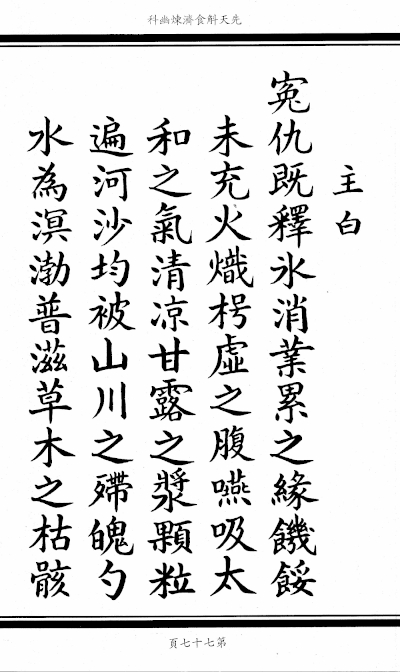 先天斛食濟煉幽科
主白
寃仇既釋氷消業累之緣饑餒
未充火熾枵虛之腹嚥吸太
和之氣清凉甘露之漿顆粒
遍河沙均被山川之殢魄勺
水為溟渤普滋草木之枯骸
第七十七頁